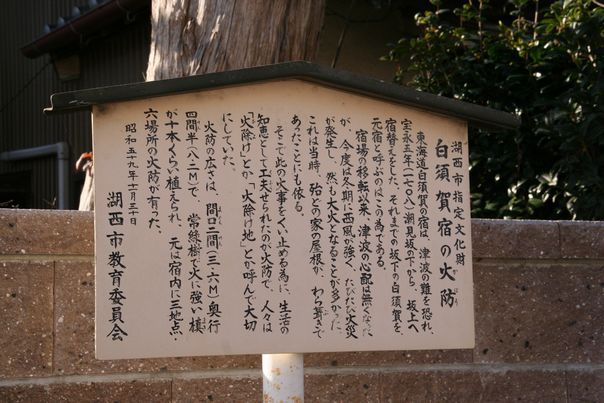 湖西市指定文化財
白須賀宿の火防
東海道白須賀の宿は、津波の難を恐れ、
宝永五年(一七〇八)潮見坂の下から、坂上へ
宿替えをした。それまでの坂下の白須賀を、
元宿と呼ぶのはこの為である。
宿場の移転以来、津波の心配は無くなった
が、今度は冬期に西風が強く、たびたび火災
が発生し、然も大火となることが多かった。
これは当時、殆どの家の屋根が、わら葺きで
あったことにも依る。
そこで此の火事をくい止める為に、生活の
知恵として工夫せられたのが火防で、人々は
「火除け」とか、「火除け地」とか呼んで大切
にしていた。
火防の広さは、間口二間(三・六M)奥行
四間半(八・二M)で、常緑樹で火に強い槙
が十本くらい植えられ、元は宿内に三地点・
六場所の火防が有った。
昭和五十九年十一月三十日
湖西市教育委員会